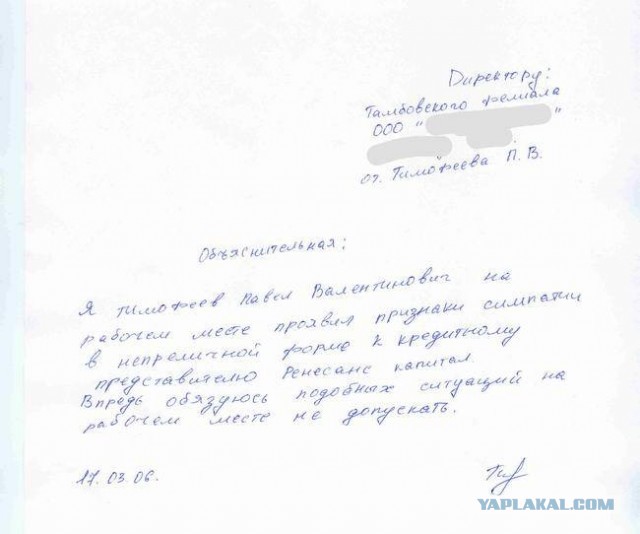 Директору:
Тамбовского фелиала
ООО " "
от. Тимофеева П. В.
Объяснительная:
Я Тимофеев Павел Валентинович на
рабочем месте проявил признаки симпатии
в непреличной форме к кредитному
представителю Ренесанс капитал.
Впредь обязуюсь подобных ситуаций на
рабочем месте не допускать.
17.03.06.
YAPLAKAL.COM